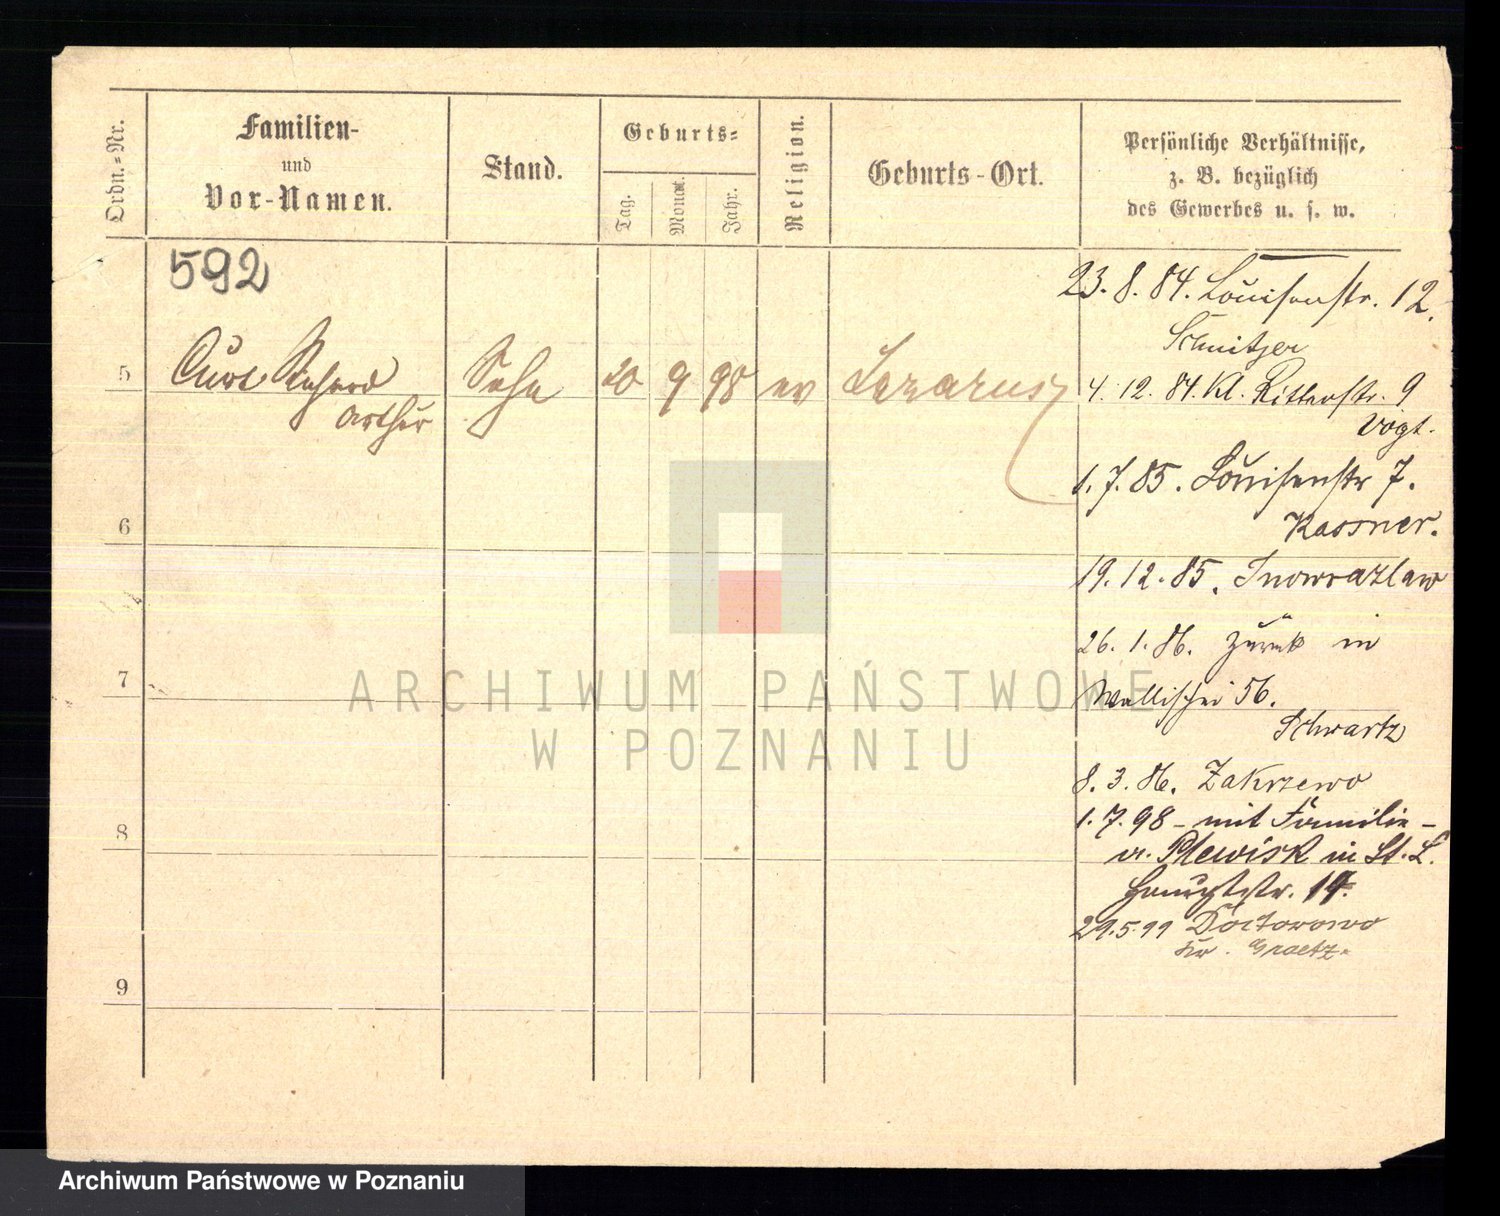 Ordn.=Nr.
Familien-
und
Vor-Namen.
Stand.
Geburts=
Tag.
Monat.
Jahr.
Religion.
Geburts-Ort.
Persönliche Verhältnisse,
z. B. bezüglich
des Gewerbes u. s. w.
592
23. 8. 84. Louisenstr. 12.
Schnitzer
5 Curt Richard Sohn 20 9 98 ev Lazarus
Arthur
4. 12. 84. Kl. Ritterstr. 9
Vogt.
1. 7. 85. Louisenstr 7.
Kassner.
6
19. 12. 85. Inowrazlaw
26. 1. 86. zurück in
7
Wallischei 56.
Schwartz
8. 3. 86. Zakrzewo
1. 7. 98 - mit Familie -
v. Plewisk in St. L.
8
Hauptstr. 14.
29. 5. 99 Doctorowo
Kr. Graetz.
9
ARCHIWUM PAŃSTWOWE
W POZNANIU
Archiwum Państwowe w Poznaniu